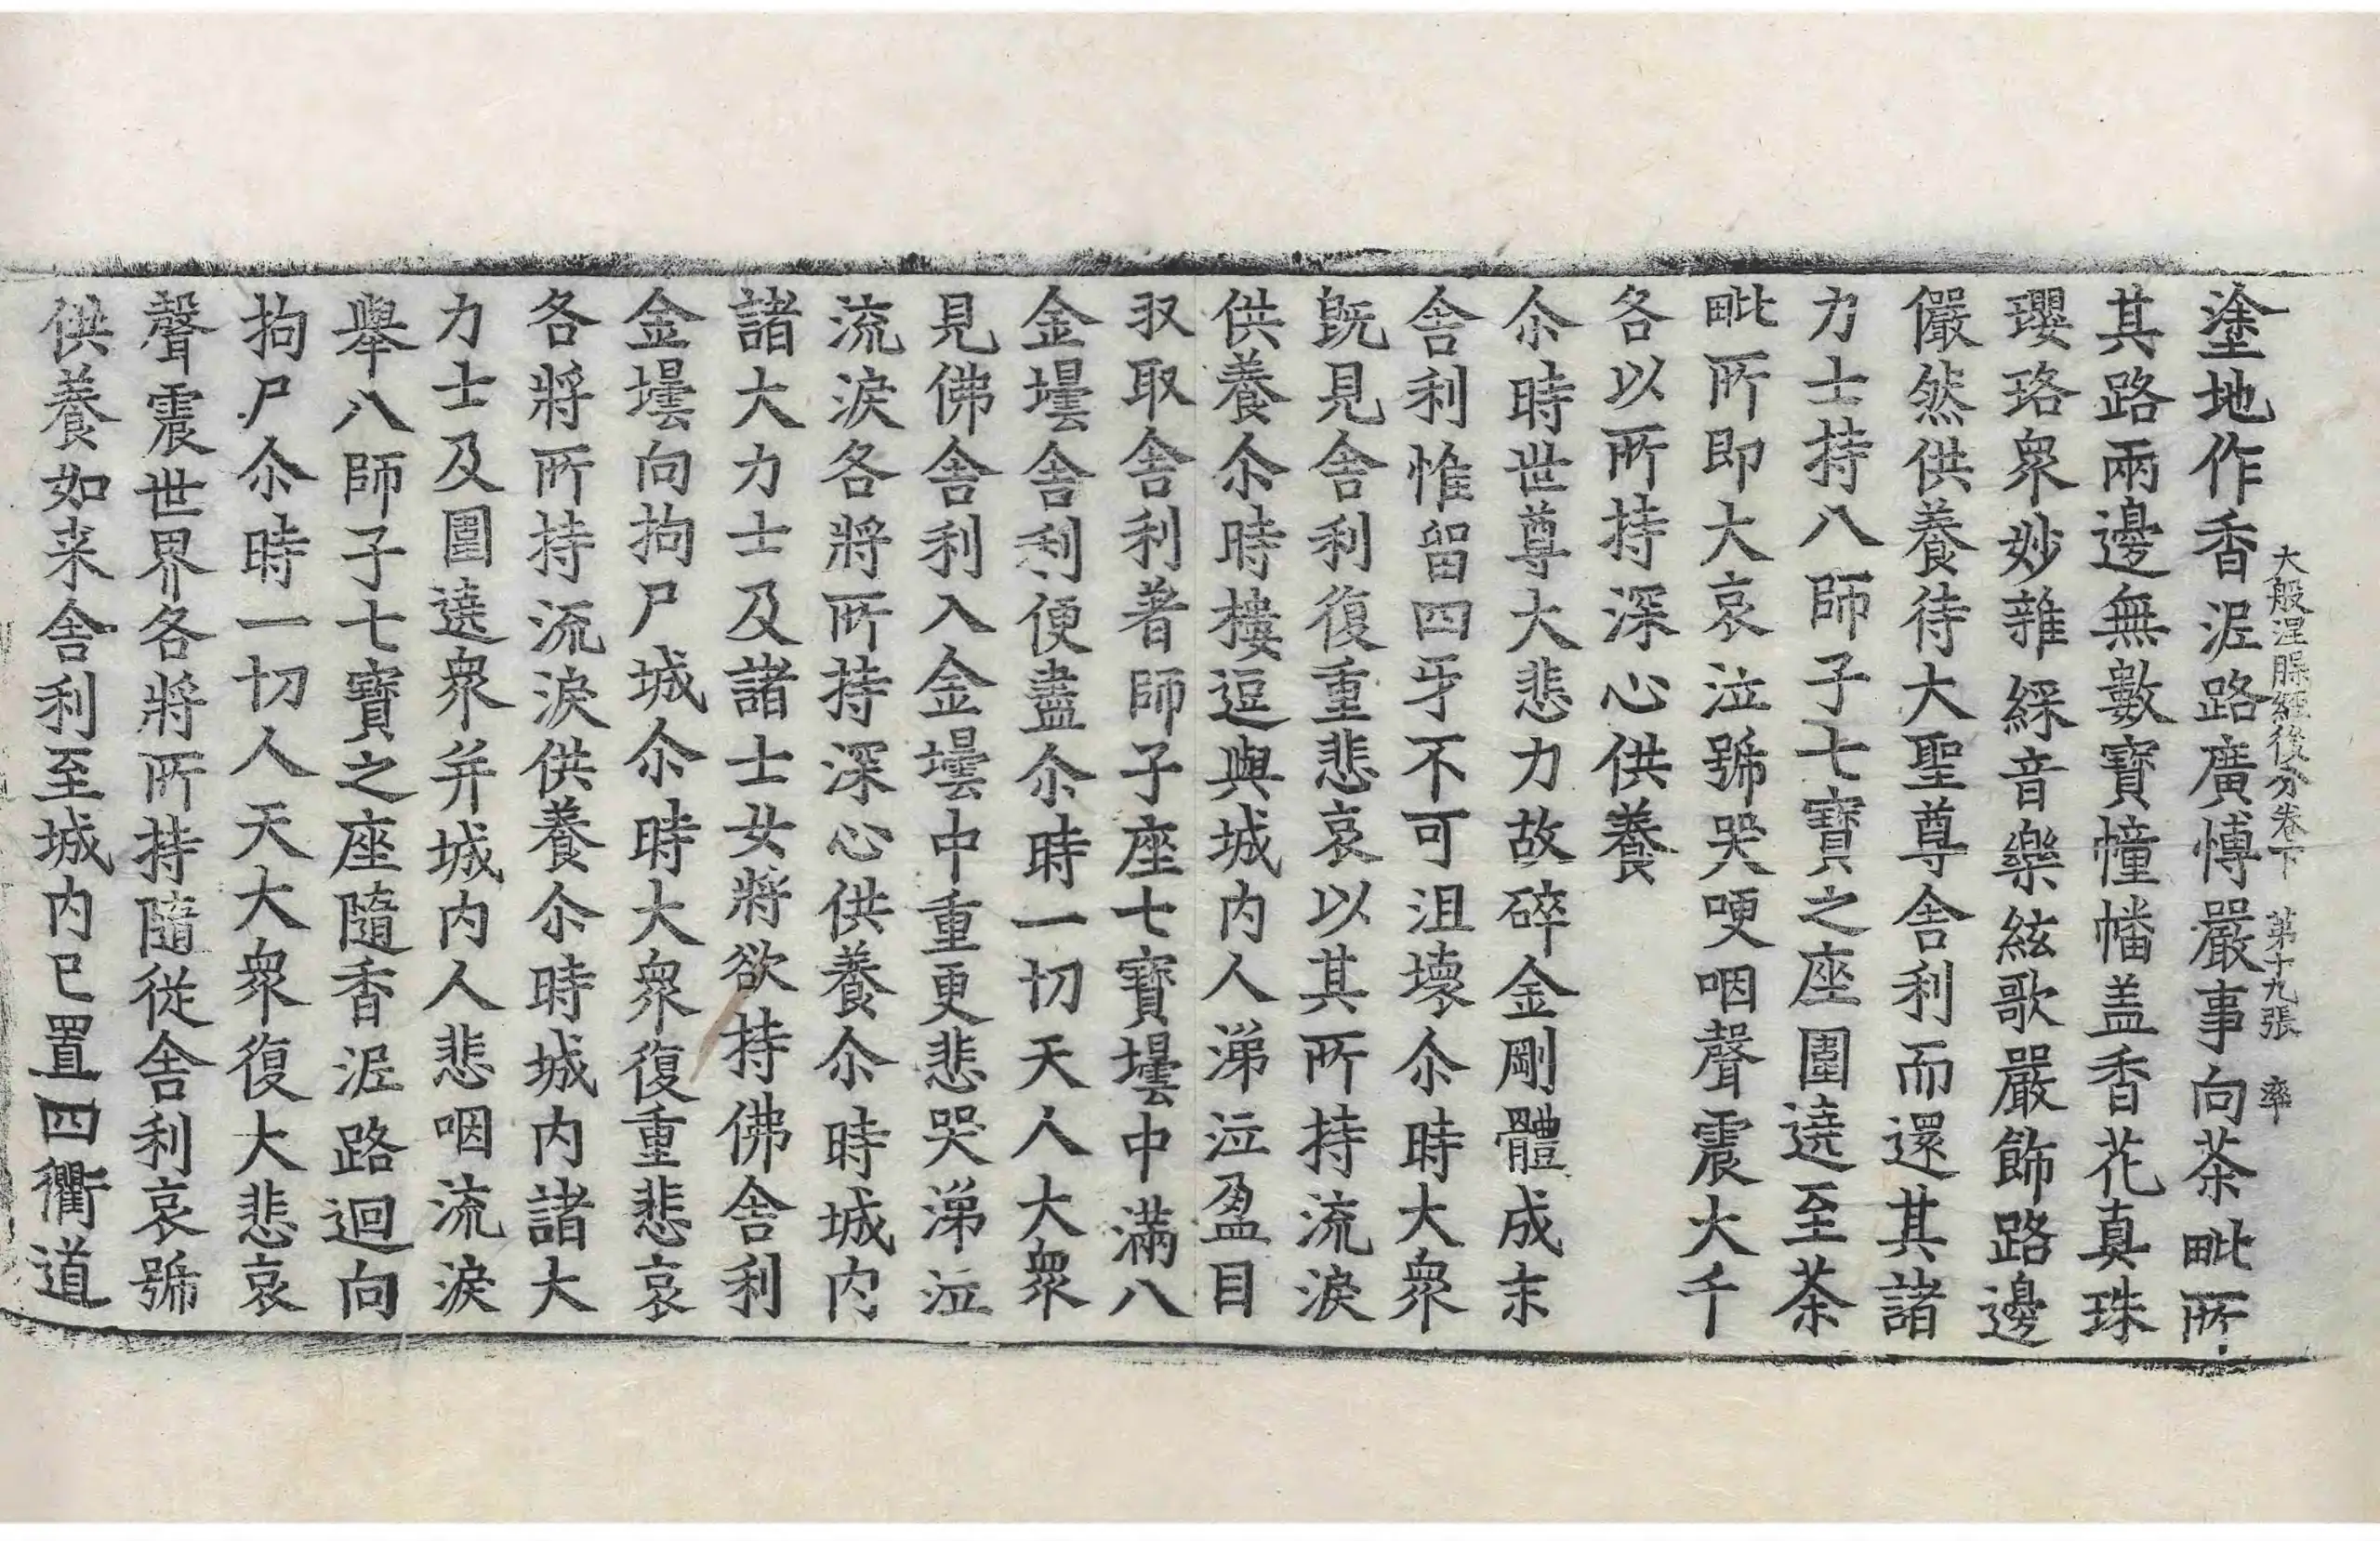 大般涅槃經後分卷下　第十九張　率
塗地作香泥路廣博嚴事向茶毗所
其路兩邊無數寶幢幡盖香花真珠
瓔珞衆妙雜綵音樂絃歌嚴飾路邊
儼然供養待大聖尊舍利而還其諸
力士持八師子七寶之座圍遶至茶
毗所即大哀泣號哭哽咽聲震大千
各以所持深心供養
尒時世尊大悲力故碎金剛體成末
舍利惟留四牙不可沮壞尒時大衆
旣見舍利復重悲哀以其所持流淚
供養尒時樓逗與城内人涕泣盈目
収取舍利著師子座七寶壜中滿八
金壜舍利便盡尒時一切天人大衆
見佛舍利入金壜中重更悲哭涕泣
流淚各將所持深心供養尒時城内
諸大力士及諸士女將欲持佛舍利
金壜向拘尸城尒時大衆復重悲哀
各將所持流淚供養尒時城内諸大
力士及圍遶衆并城内人悲咽流淚
舉八師子七寶之座隨香泥路迴向
拘尸尒時一切人天大衆復大悲哀
聲震世界各將所持隨從舍利哀號
供養如来舍利至城内已置四衢道